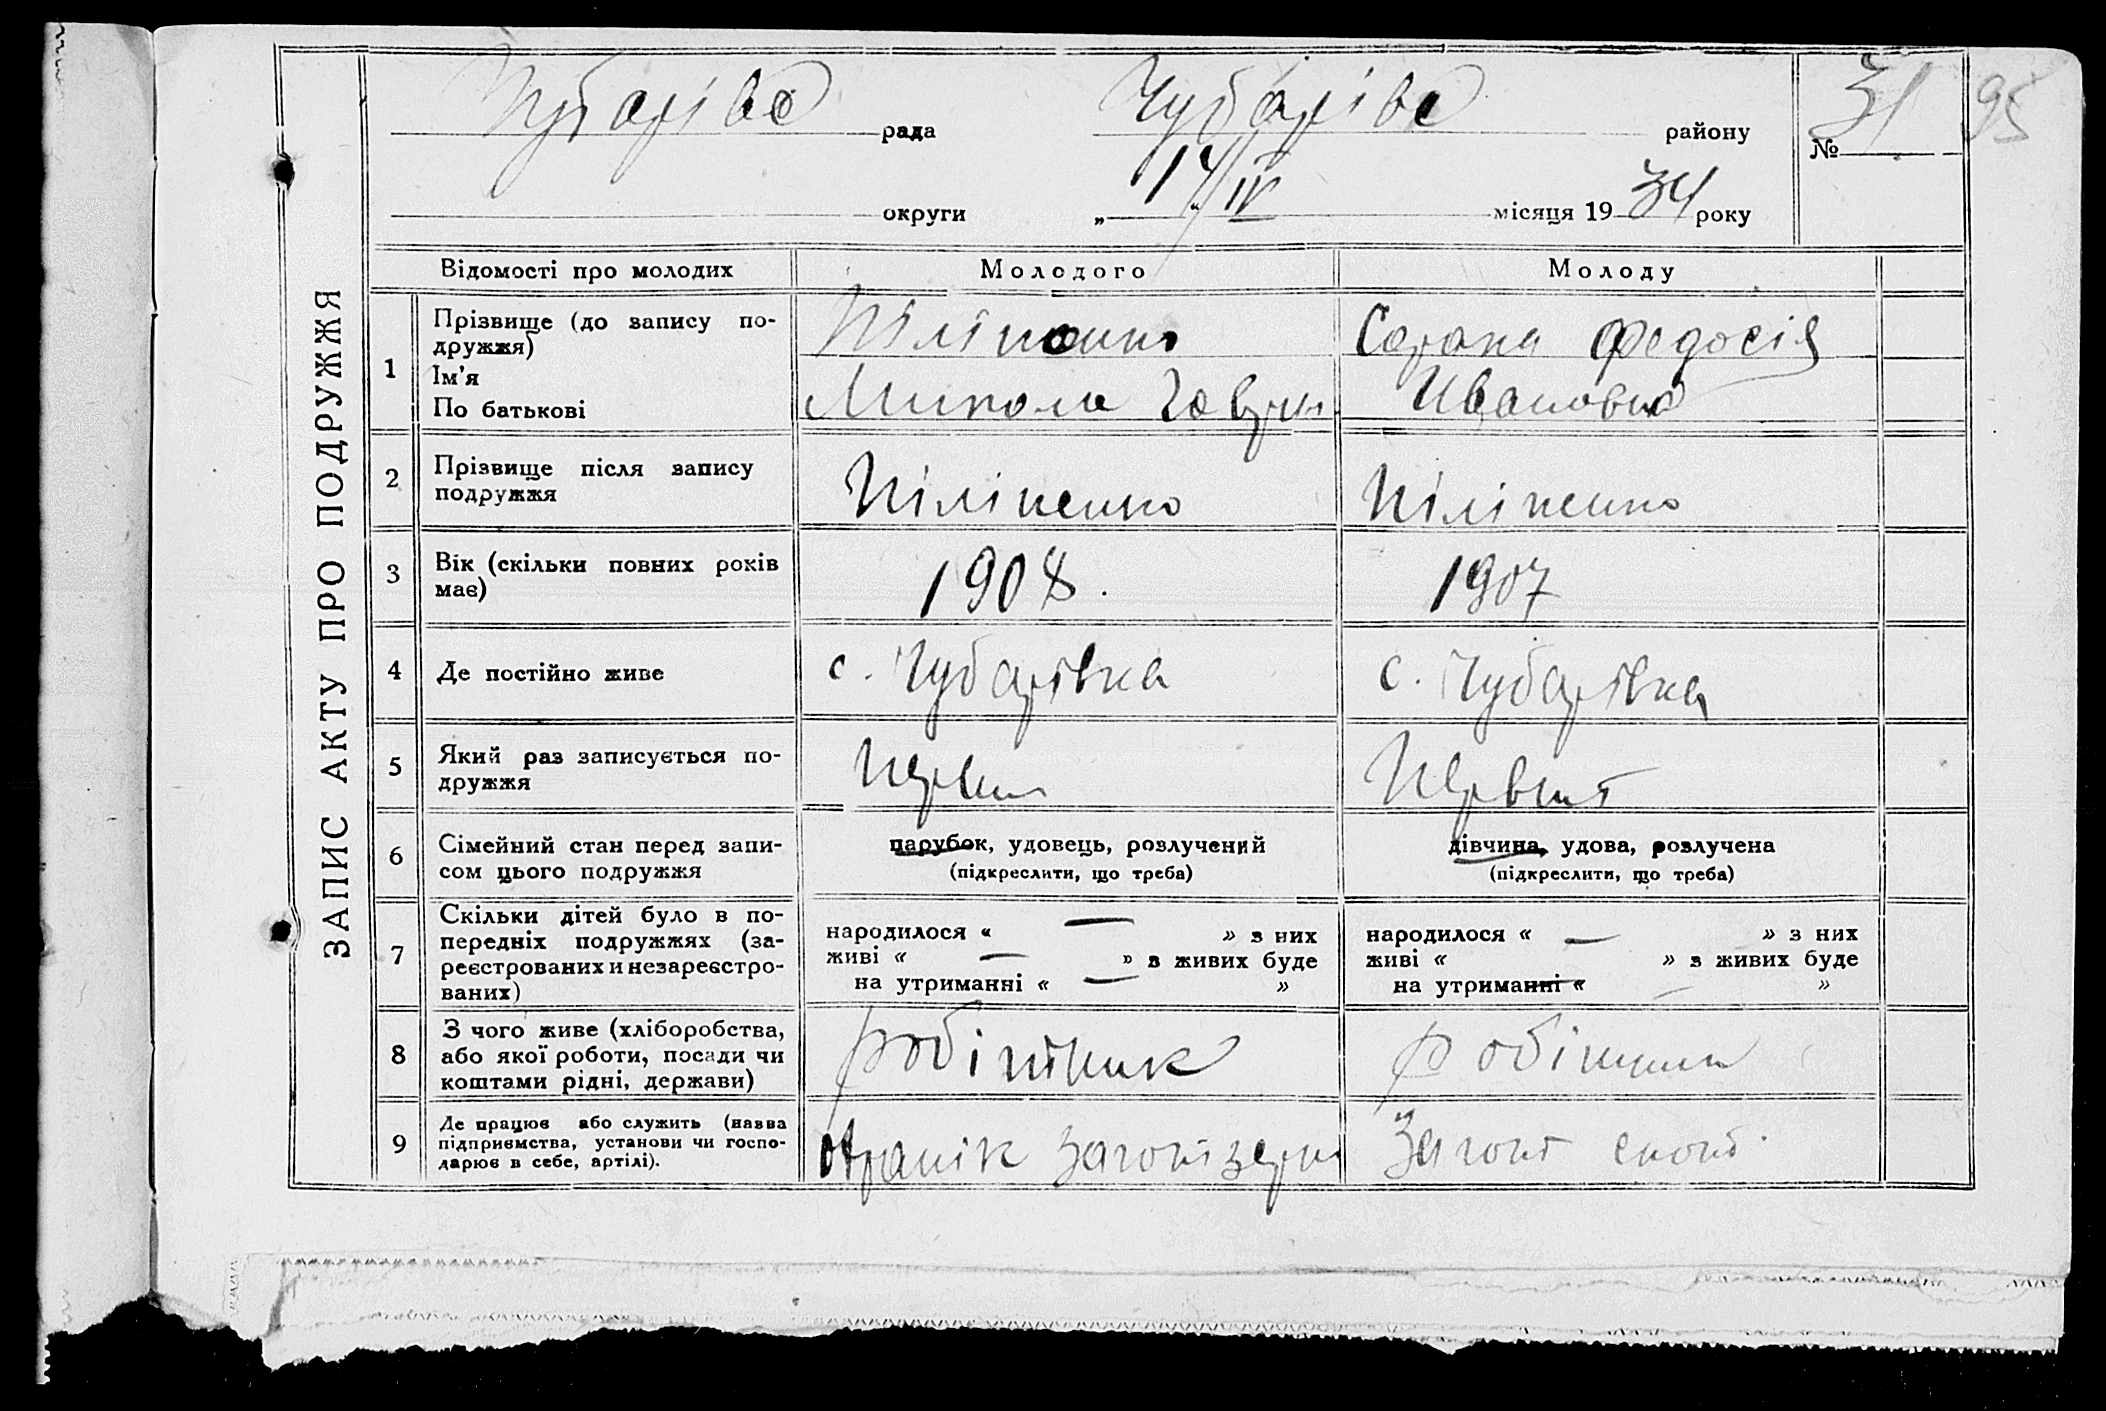 Чубарівс рада Чубарівс району № 31 95
округи „ 14/IV “ місяця 1934 року
ЗАПИС АКТУ ПРО ПОДРУЖЖЯ
Відомості про молодих Молодого Молоду
1 Прізвище (до запису по-
дружжя)
Ім'я
По батькові
Піліпенко
Микола Гаври
Сорока Федосія
Ивановна
2 Прізвище після запису
подружжя
Піліпенко Піліпенко
3 Вік (скільки повних років
має)
1908. 1907
4 Де постійно живе с. Чубарівка с. Чубарівка
5 Який раз записується по-
дружжя
6 Сімейний стан перед запи-
сом цього подружжя
парубок, удовець, розлучений
(підкреслити, що треба)
дівчина, удова, розлучена
(підкреслити, що треба)
7 Скільки дітей було в по-
передніх подружжях (за-
реєстрованих и незареєстро-
ваних)
народилося « — » з них
живі « — » з живих буде
на утриманні « — »
народилося « — » з них
живі « » з живих буде
на утриманні « — »
8 З чого живе (хліборобства,
або якої роботи, посади чи
коштами рідні, держави)
робітник
9 Де працює або служить (назва
підприємства, установи чи госпо-
дарює в себе, артілі).
Заготзерно
Загот скот